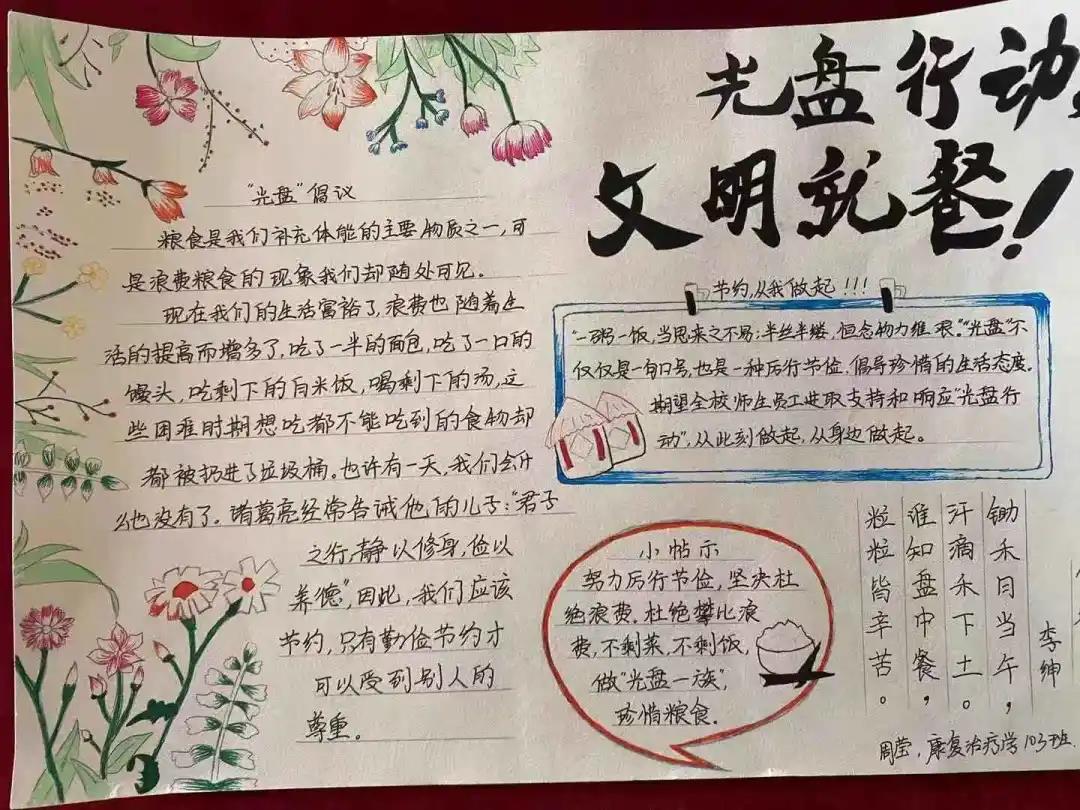 光盘行动,
文明就餐!
"光盘"倡议
粮食是我们补充体能的主要物质之一,可
是浪费粮食的现象我们却随处可见。
现在我们的生活富裕了,浪费也随着生
活的提高而增多了,吃了一半的面包,吃了一口的
馒头,吃剩下的白米饭,喝剩下的汤,这
些困难时期想吃都不能吃到的食物却
都被扔进了垃圾桶。也许有一天,我们会什
么也没有了。诸葛亮经常告诫他的儿子:"君子
之行,静以修身,俭以
养德",因此,我们应该
节约,只有勤俭节约才
可以受到别人的
尊重。
节约,从我做起!!!
"一粥一饭,当思来之不易;半丝半缕,恒念物力维艰。"光盘"不
仅仅是一句口号,也是一种厉行节俭、倡导珍惜的生活态度。
期望全校师生员工进取支持和响应"光盘行
动",从此刻做起,从身边做起。
小帖示
努力厉行节俭,坚决杜
绝浪费。杜绝攀比浪
费,不剩菜,不剩饭,
做"光盘一族",
珍惜粮食。
李绅
锄禾日当午,
汗滴禾下土。
谁知盘中餐,
粒粒皆辛苦。
周莹,康复治疗学103班